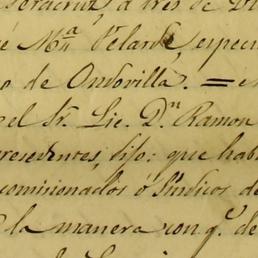 Veracruz, a tres de Di
é M.ª Velard, especi
o de Ondovilla. = e
el Sr. Lic. D.n Ramon
presedentes, dijo: que hab
comisionados ó Síndicos de
la manera con q.e de